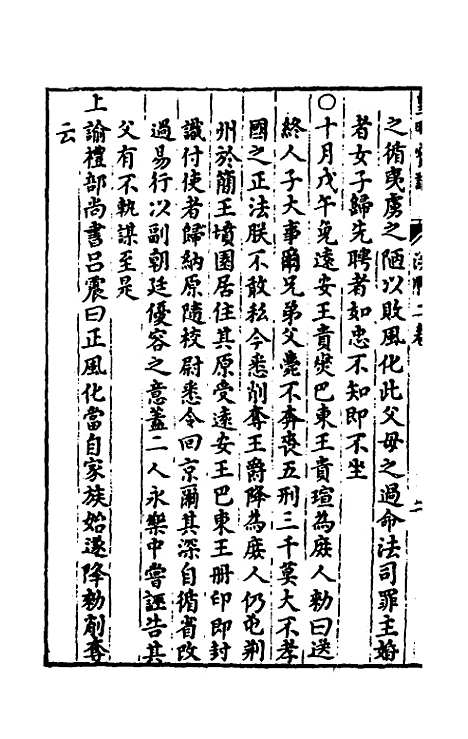 之循夷虜之陋以敗風化此父母之過命法司罪主婚
者女子歸先聘者如忠不知即不坐
○十月戊午免遠安王貴燮巴東王貴煊為庶人勑曰送
終人子大事爾兄弟父薨不奔喪五刑三千莫大不孝
國之正法朕不敢私今悉削奪王爵降為庶人仍屯荆
州於簡王墳園居住其原受遠安王巴東王冊印即封
識付使者歸納原隨校尉悉令回京爾其深自循省改
過易行以副朝廷優容之意蓋二人永樂中嘗誣告其
父有不軌謀至是
上諭禮部尚書呂震曰正風化當自家族始遂降勑削奪
云